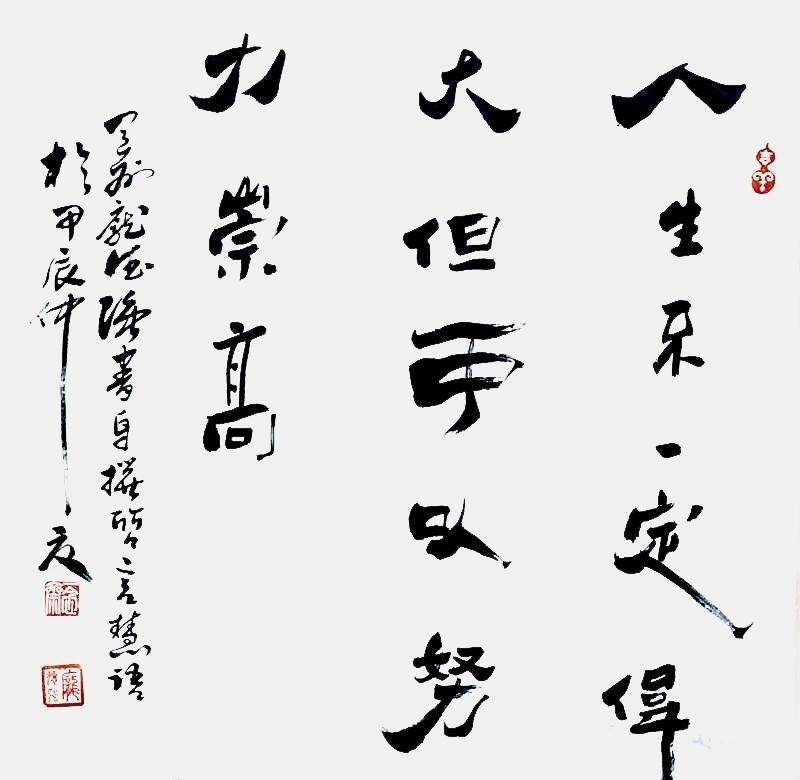 人生不一定偉
大但可以努
力崇高
龐德書自撰哲言慧語
於甲辰仲夏